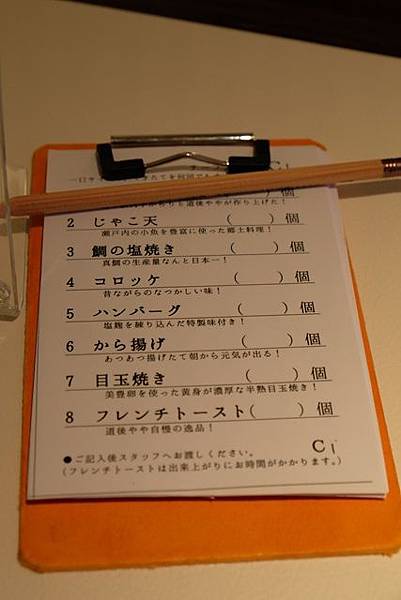 C i
個
道後ややが作り上げた！
2 じゃこ天 （ ）個
瀬戸内の小魚を豊富に使った郷土料理！
3 鯛の塩焼き （ ）個
真鯛の生産量なんと日本一！
4 コロッケ （ ）個
昔ながらのなつかしい味！
5 ハンバーグ （ ）個
塩麹を練り込んだ特製味付き！
6 から揚げ （ ）個
あつあつ揚げたて朝から元気が出る！
7 目玉焼き （ ）個
美豊卵を使った黄身が濃厚な半熟目玉焼き！
8 フレンチトースト（ ）個
道後やや自慢の逸品！
C i
●ご記入後スタッフへお渡しください。
（フレンチトーストは出来上がりにお時間がかかります。）